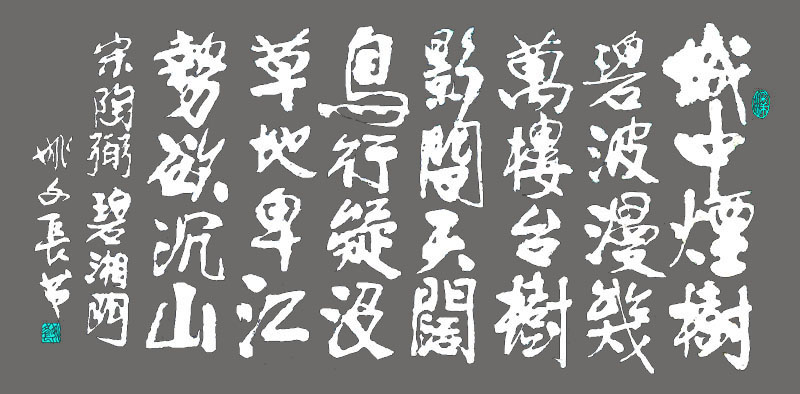 城中煙樹
碧波漫幾
萬樓台樹
影間天闊
鳥行疑沒
草地卑江
勢欲沉山
宋陶弼碧湘門
姚文長